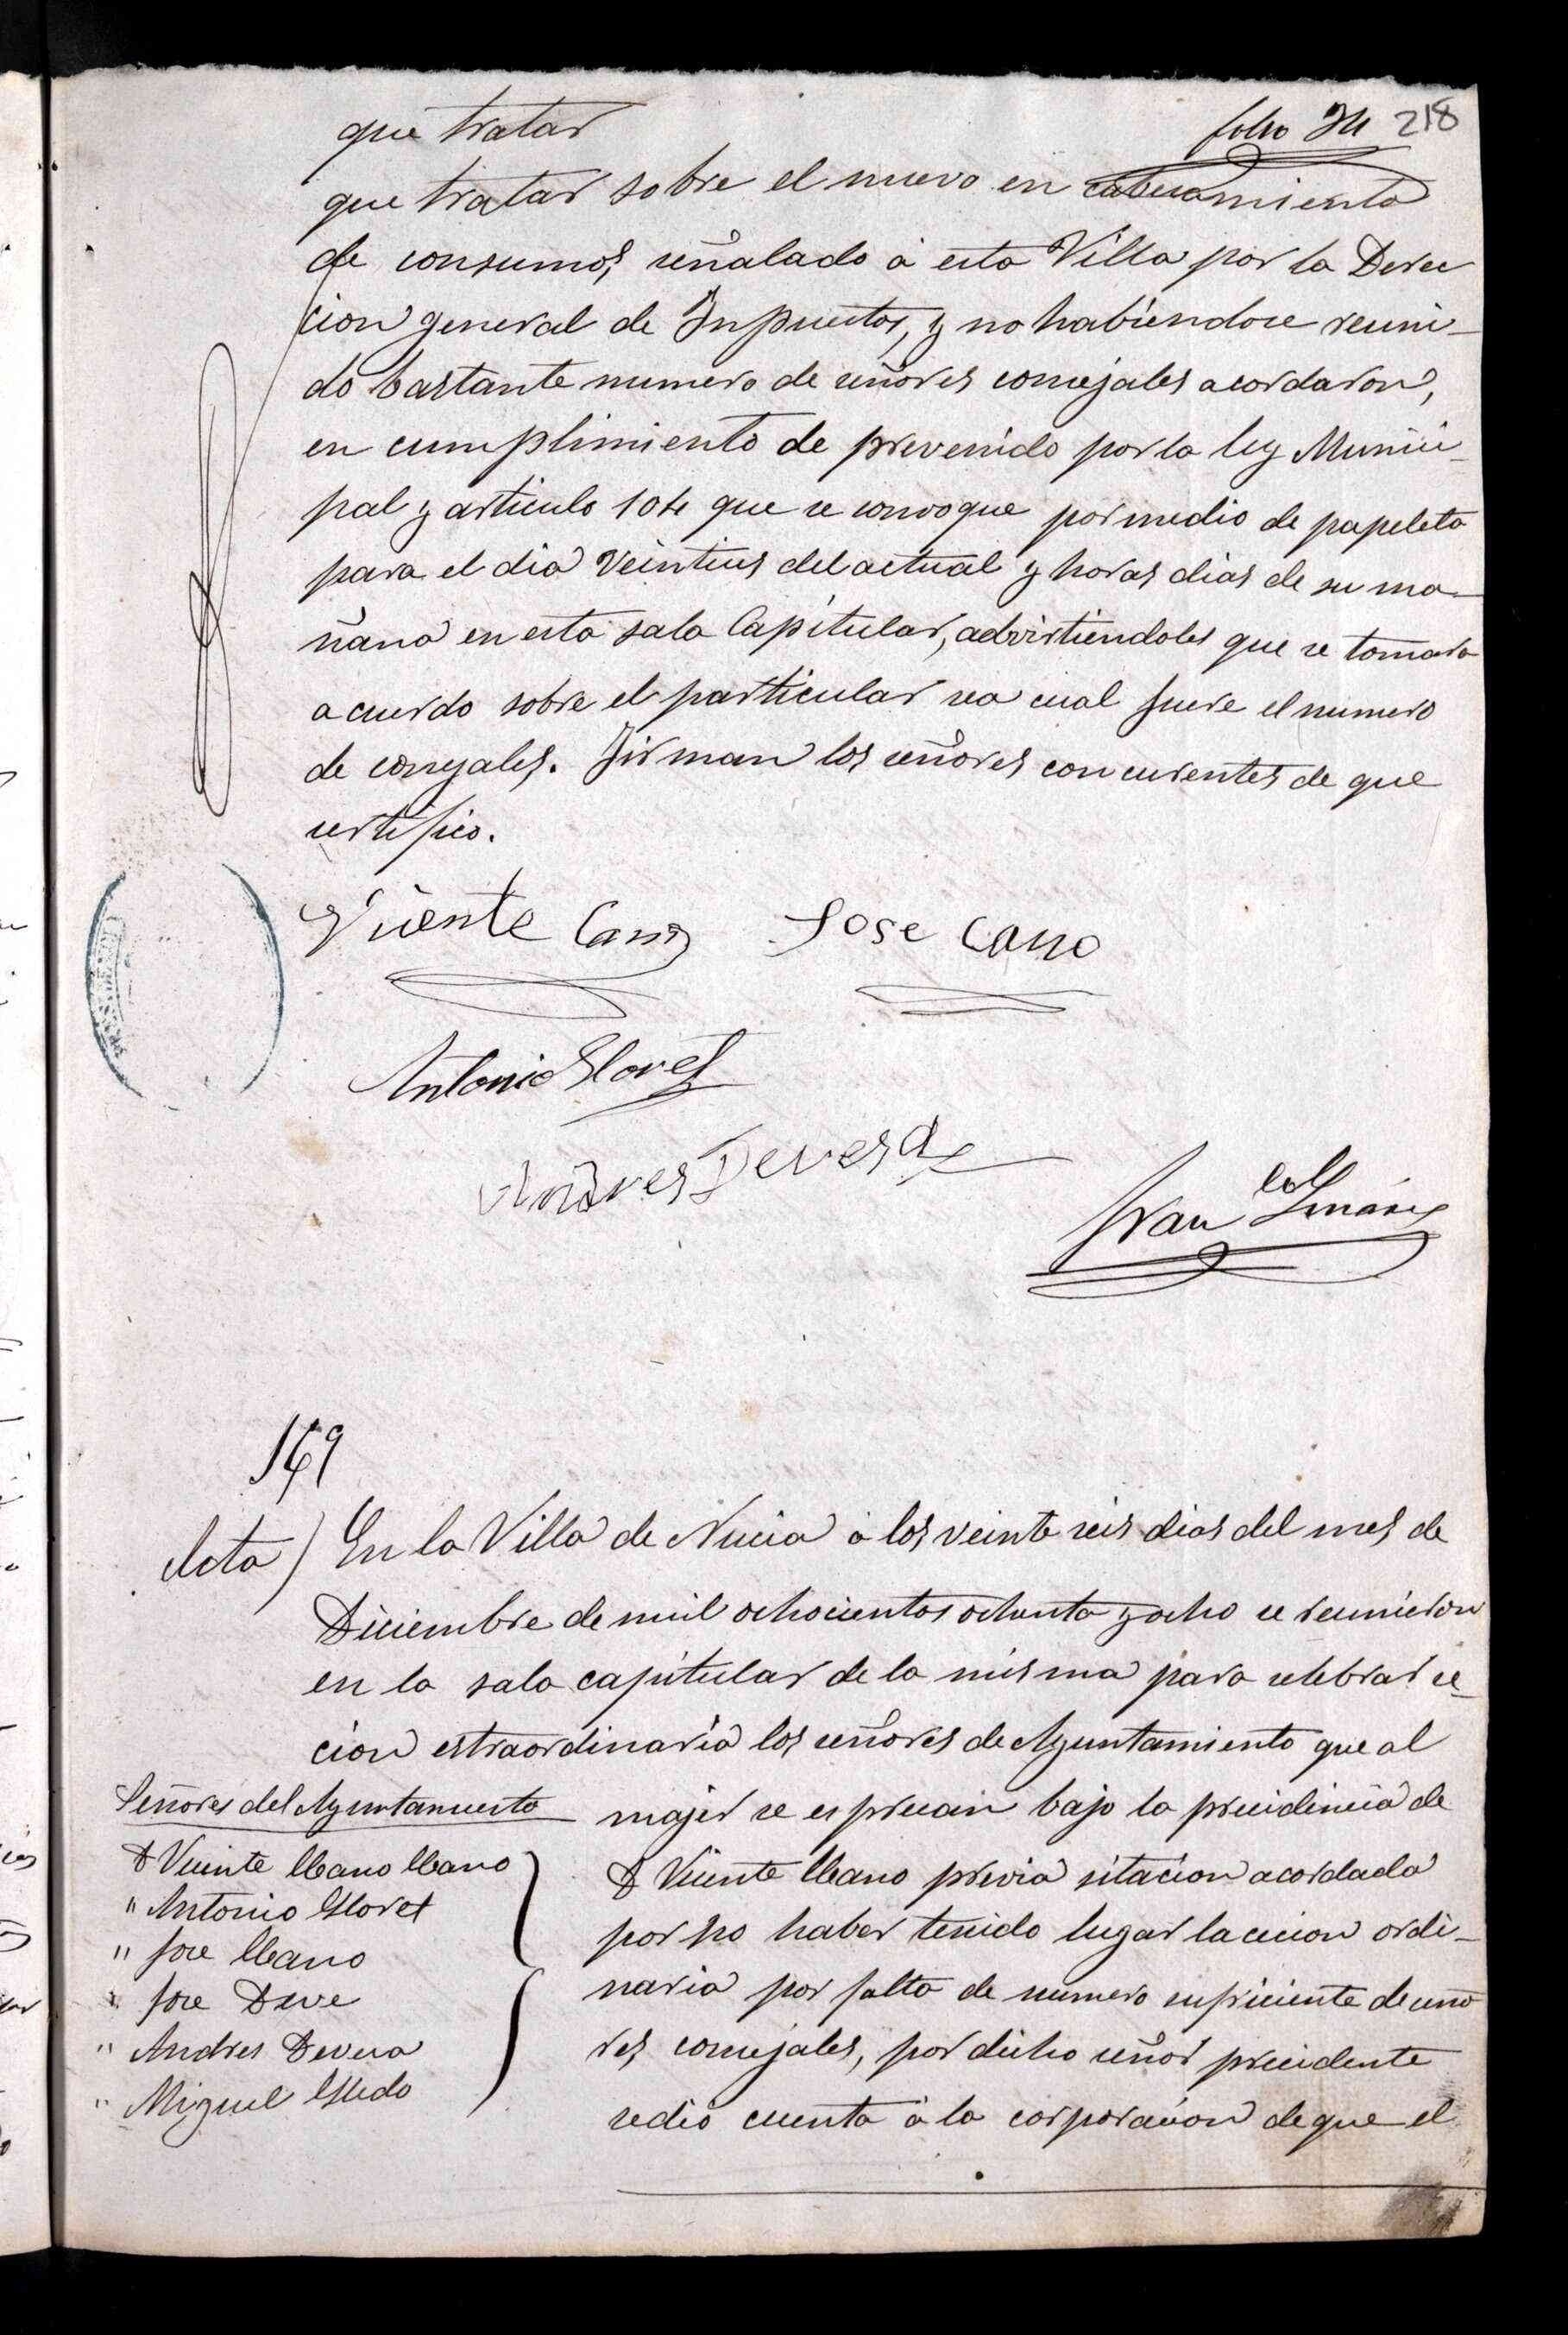 que tratar
folio 34 218
que tratar sobre el nuevo en caberamiento
de consumos, señalado á esta Villa por la Derec
cion general de Inpuestos, y no habiendose reuni-
do bastante numero de señores concejales acordaron,
en cumplimiento de prevenido por la ley Munici-
pal y articulo 104 que se convoque por medio de papeleta
para el dia veintiseis del actual y horas dias de su ma-
ñana en esta sala Capitular, advirtiendoles que se tomara
acuerdo sobre el particular sea cual fuere el numero
de conejales. Firman los señores concurentes de que
certifico.
Vicente Cano Jose Cano
Antonio Lloret
Andres Devesa
Fran.co Linares
169
Acta) En la Villa de Nucia á los veinte seis dias del mes de
Diciembre de mil ochocientos ochenta y ocho se reunieron
en la sala capitular de la misma para celebrar se-
cion estraordinaria los señores de Ayuntamiento que al
majer se espresan bajo la presidencia de
D Vicente Cano previa sitacion acordada
por no haber tenido lugar la cecion ordi-
naria por falta de numero suficiente de seño
res concejales, por dicho señor presidente
se dió cuenta á la corporacion de que el
Señores del Ayuntamiento
D Vicente Cano Cano
" Antonio Lloret
" Jose Cano
" Jose Deve
" Andres Devesa
" Miguel Lledo